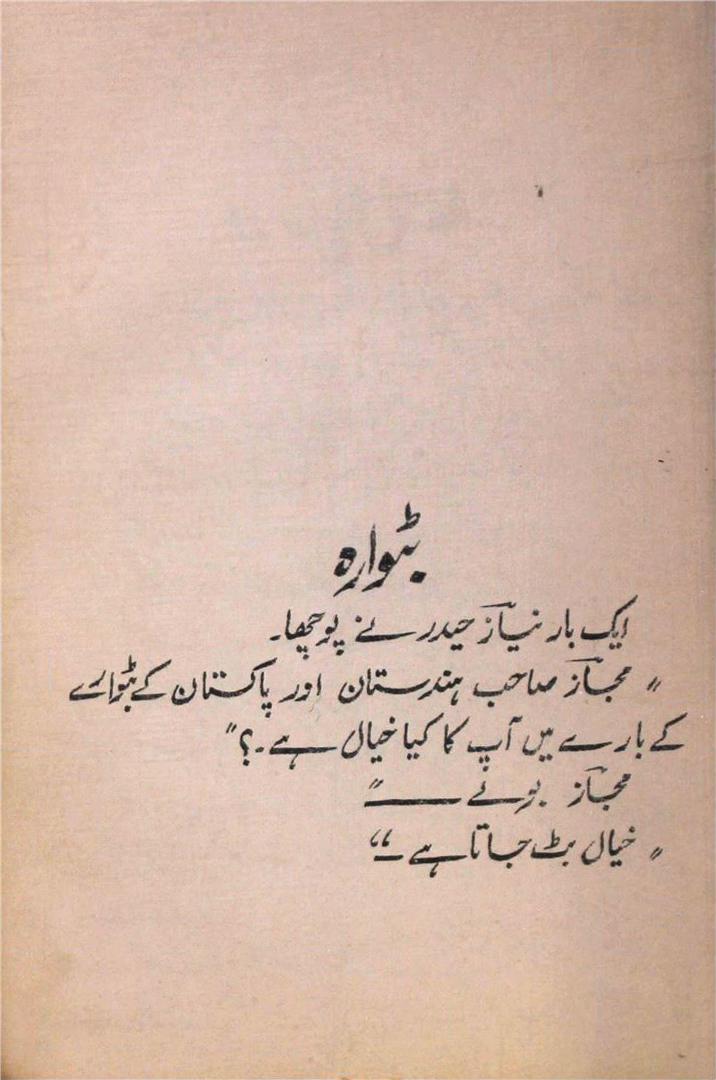 بٹوارہ
ایک بار نیازؔ حیدر نے پوچھا۔
"مجازؔ صاحب ہندستان اور پاکستان کے بٹوارے
کے بارے میں آپ کا کیا خیال ہے۔؟"
مجازؔ بولے ــــ"
"خیال بٹ جاتا ہے ــ"